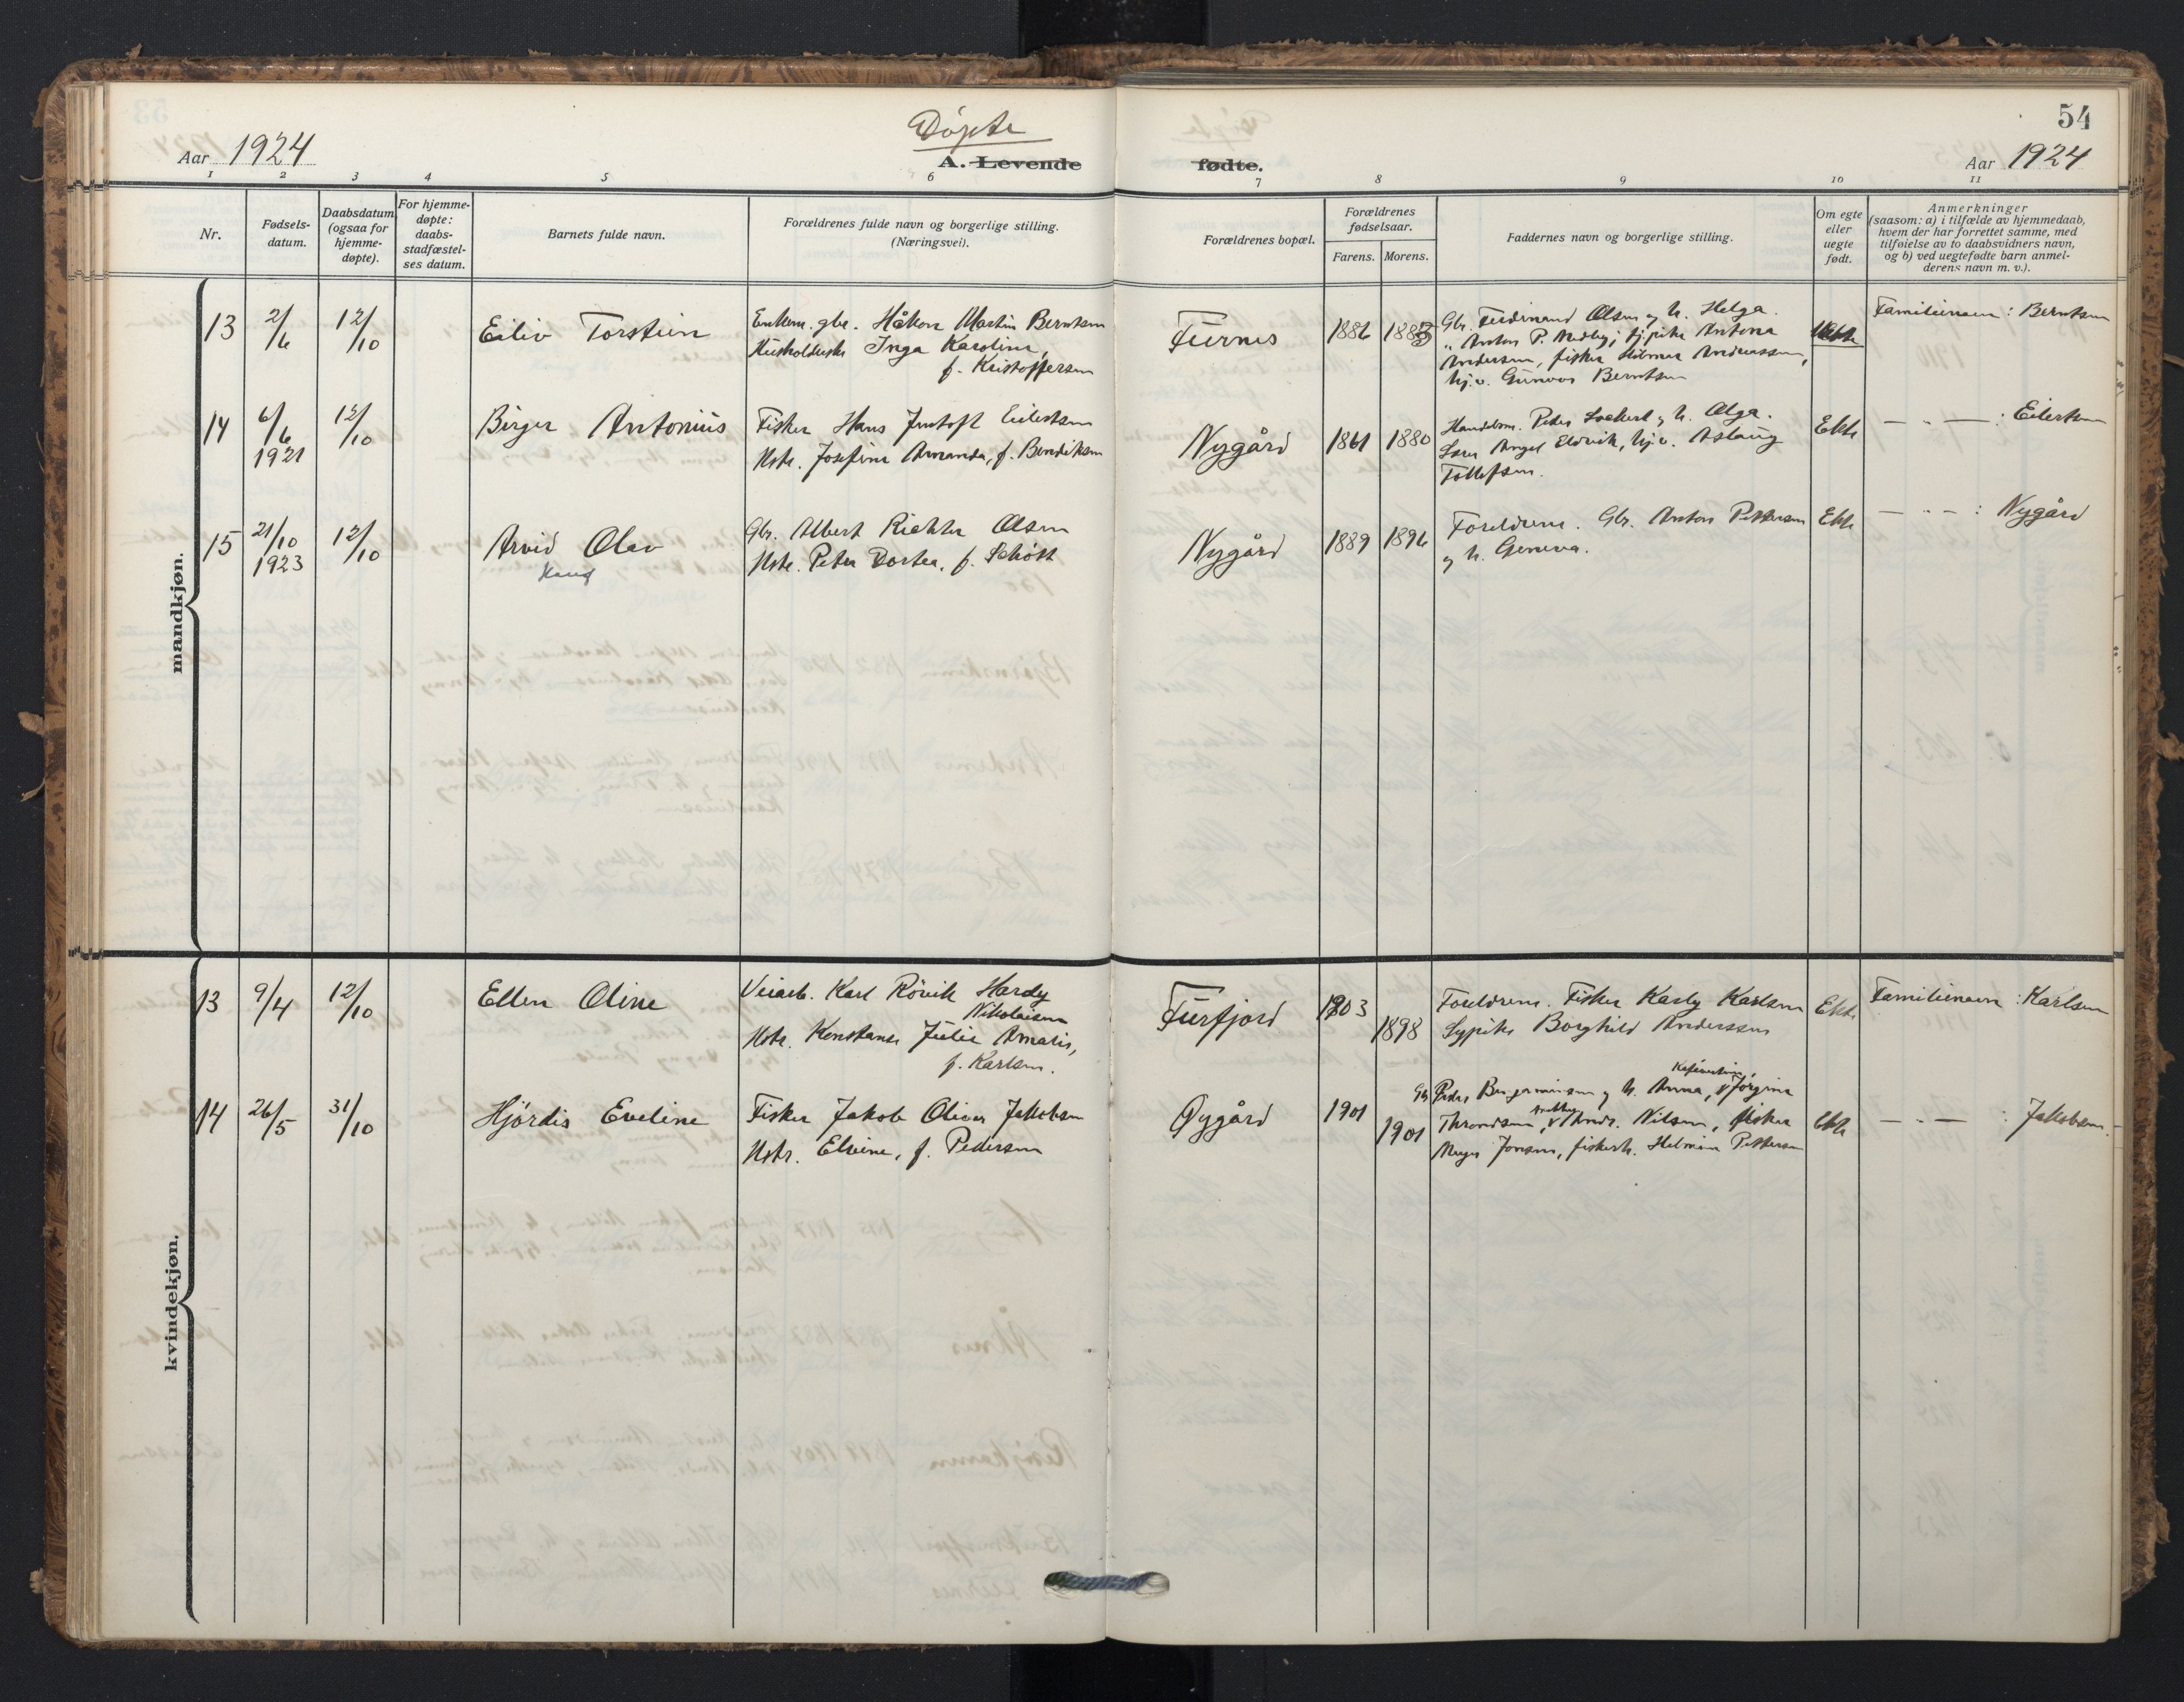 54
Aar 1924
Døpte
A. Levende
fødte.
Aar 1924
1 2 3 4 5 6 7 8 9 10 11
Nr.
Fødsels-
datum.
Daabsdatum
(ogsaa for
hjemme-
døpte).
For hjemme-
døpte:
daabs-
stadfæstel-
ses datum.
Barnets fulde navn.
Forældrenes fulde navn og borgerlige stilling.
(Næringsvei).
Forældrenes bopæl.
Forældrenes
fødselsaar.
Farens. Morens.
Faddernes navn og borgerlige stilling.
Om egte
eller
uegte
født.
Anmerkninger
(saasom: a) i tilfælde av hjemmedaab,
hvem der har forrettet samme, med
tilføielse av to daabsvidners navn,
og b) ved uegtefødte barn anmel-
derens navn m. v.).
mandkjøn.
13
2/6
12/10
Eiliv Torstein
Enkem. gbr. Håkon Martin Berntsen
Husholderske Inga Karoline,
f. Kristoffersen
Furnes
1886 1883
Gbr. Ferdinand Olsen og h. Helga.
" Anton P. Medby; sypike Antona
Andersen, fisker Hilmar Andreassen,
hj.v. Gunvor Berntsen
Familienavn: Berntsen
14
6/6
1921
12/10
Birger Antonius
Fisker Hans Jentoft Eilertsen
Hstr. Josefine Amanda, f. Bendiksen
Nygård
1861 1880
Handelsm. Peder Lockert og h. Olga.
Angel Eldevik, hj.v. Aslaug
Tollefsen.
Ekte
— " — : Eilertsen
15
21/10
1923
12/10
Arvid Olav
Haug
Gbr. Albert Rickter Olsen
Hstr. Petra Dortea, f. Schøtt
Nygård
1889 1896
Foreldrene. Gbr. Anton Pettersen
og h. Geneva.
Ekte
— " — : Nygård
kvindekjøn.
13
9/4
12/10
Ellen Oline
Veiarb. Karl Rövik Hardy
Nikolaisen
Hstr. Konstanse Julie Amalie,
f. Karlsen.
Furfjord
1903
1898
Foreldrene. Fisker Karly Karlsen
Sypike Borghild Anderssen
Ekte
Familienavn: Karlsen
14
26/5
31/10
Hjördis Eveline
Fisker Jakob Oliver Jakobsen
Hstr. Elvine, f. Pedersen
Øygård
1901
1901
Gbr. Peder Benjaminsen og h. Anna, Jörgine
Throndsen, Andr. Nilsen, fisker
Meyer Jonsen, fiskerh. Helmine Pettersen
Ekte
— " — : Jakobsen.